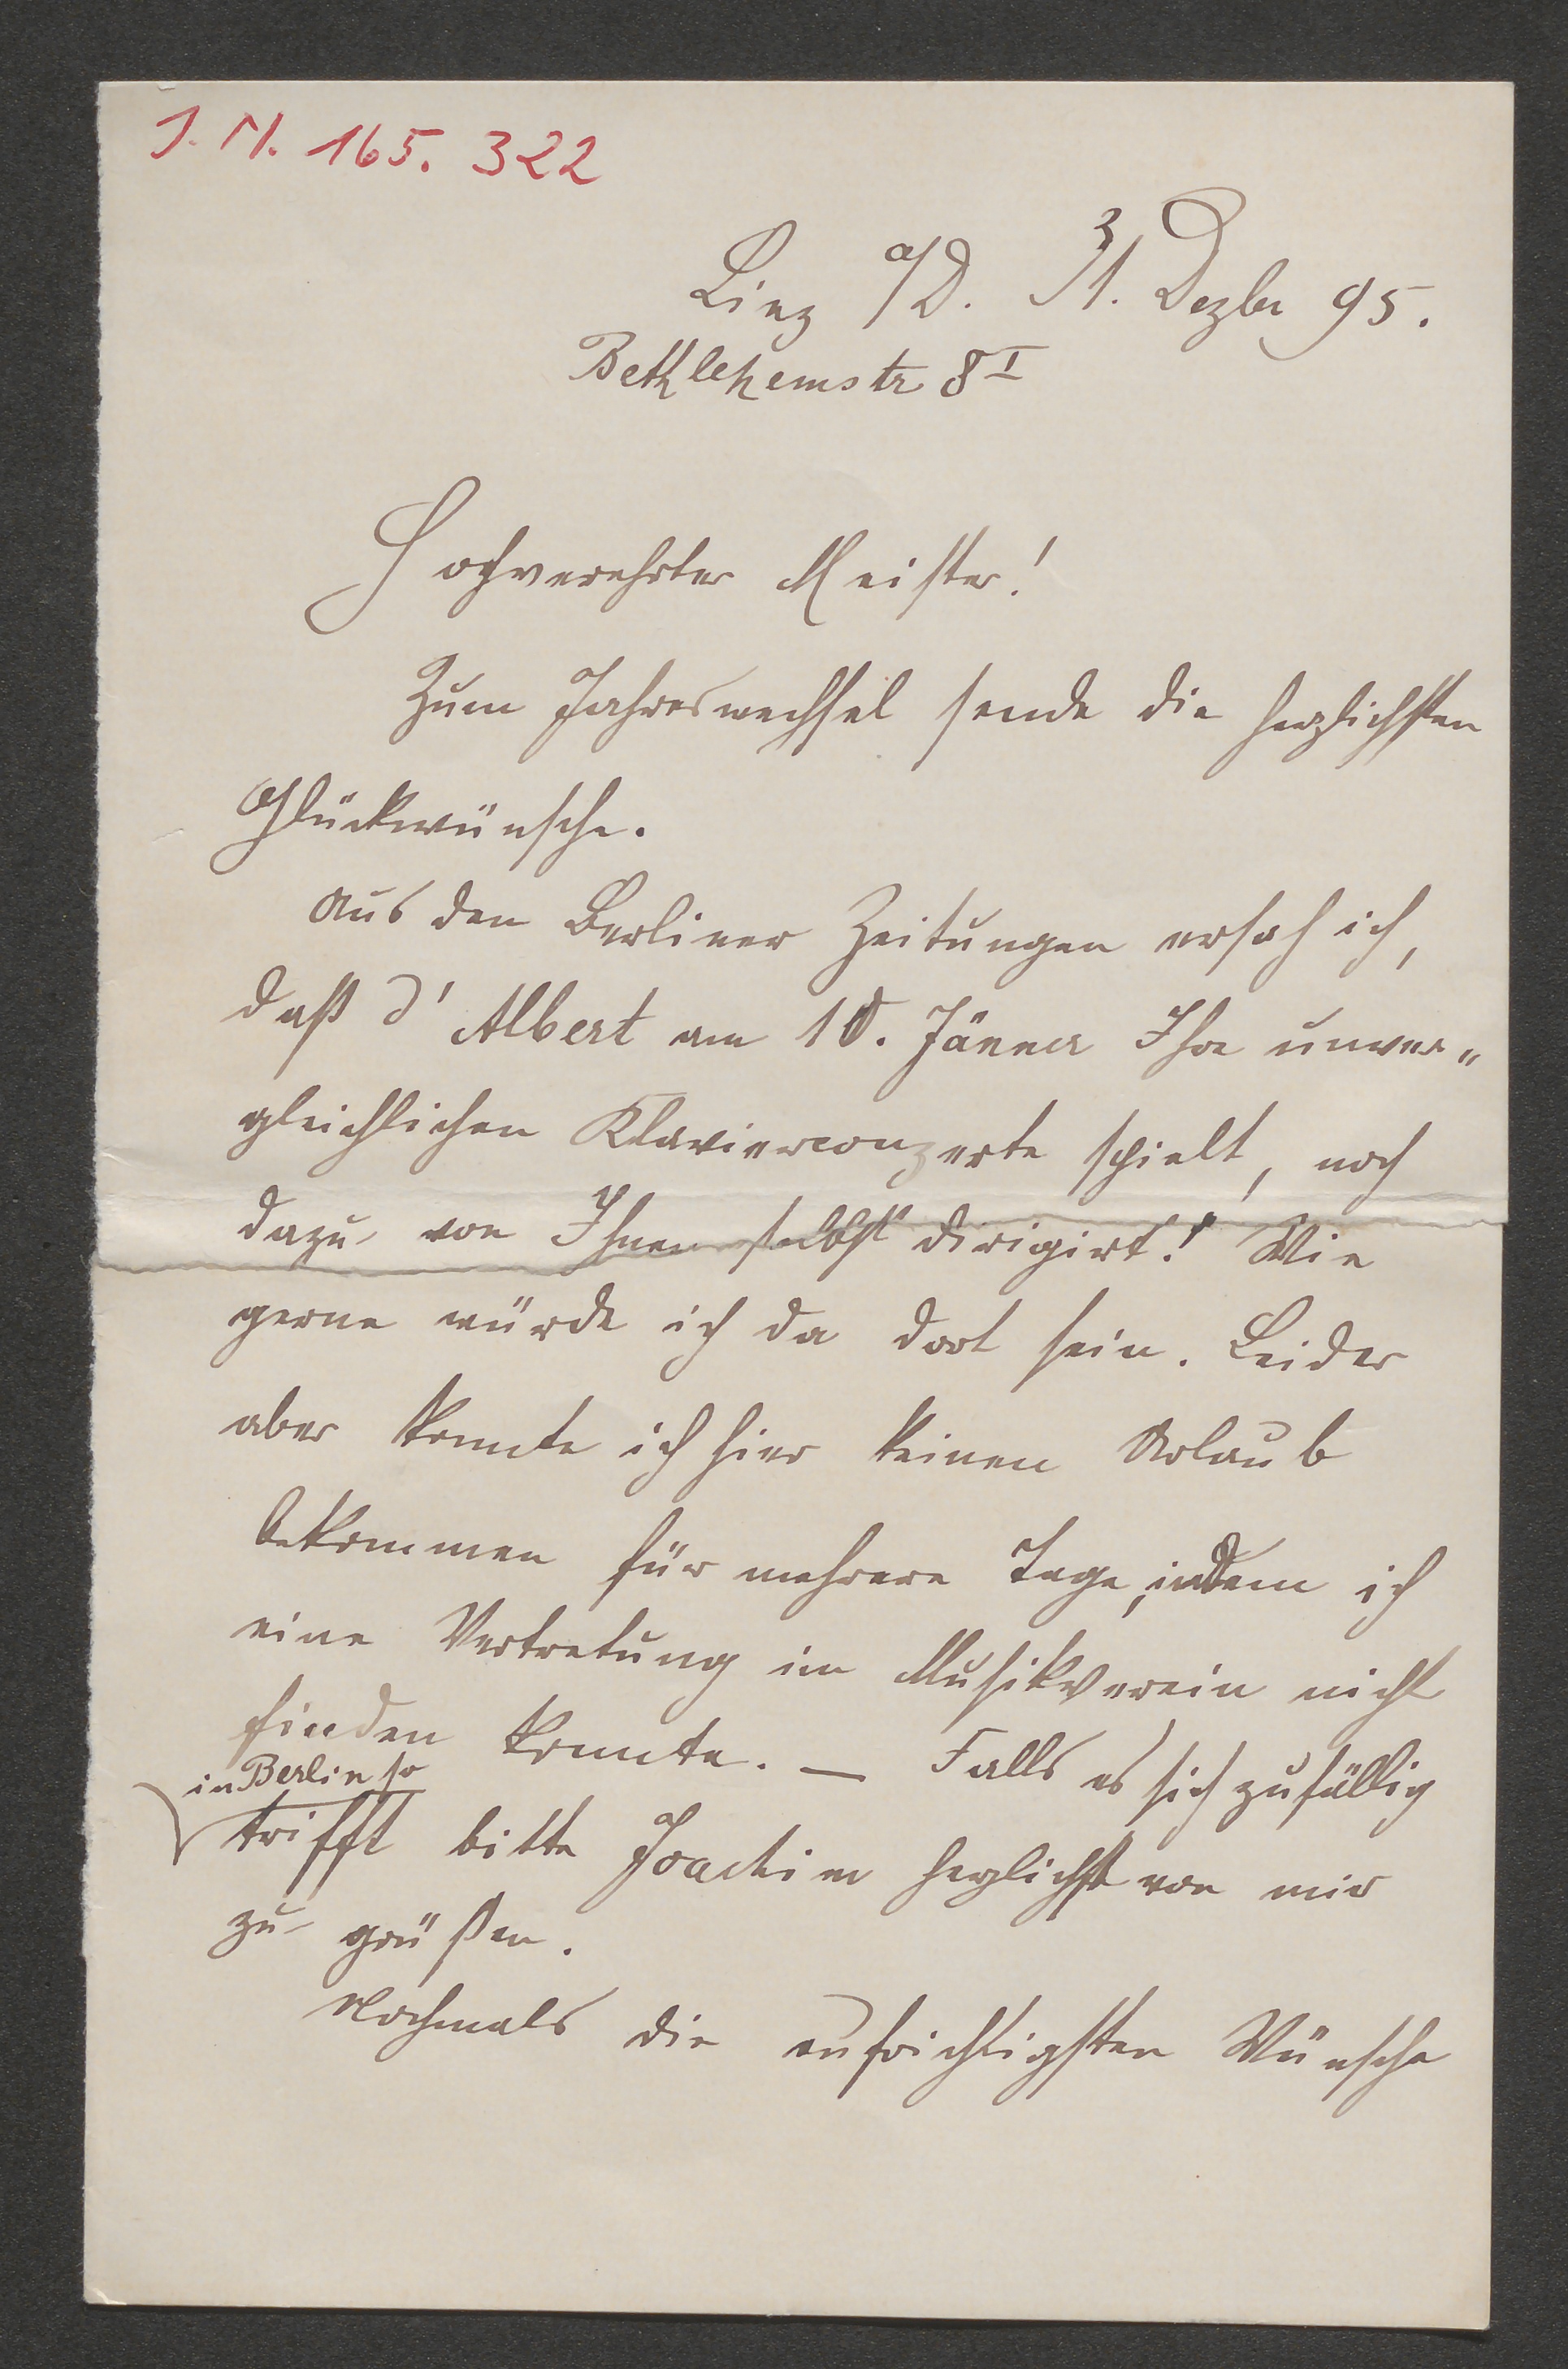 J. N. 165.322
Linz a/D. 31. Dezbr 95.
Bethlehemstr 8 I
Hochverehrter Meister!
Zum Jahreswechsel sende die herzlichsten
Glückwünsche.
Aus den Berliner Zeitungen ersah ich,
daß d'Albert am 10. Jänner Ihre unver„
gleichlichen Klavierconzerte spielt, noch
dazu von Ihnen selbst dirigirt! Wie
gerne würde ich da dort sein. Leider
aber konnte ich hier keinen Urlaub
bekommen für mehrere Tage, indem ich
eine Vertretung im Musikverein nicht
finden konnte. — Falls es sich zufällig
in Berlin so
trifft bitte Joachim herzlichst von mir
zu grüßen.
Nochmals die aufrichtigsten Wünsche